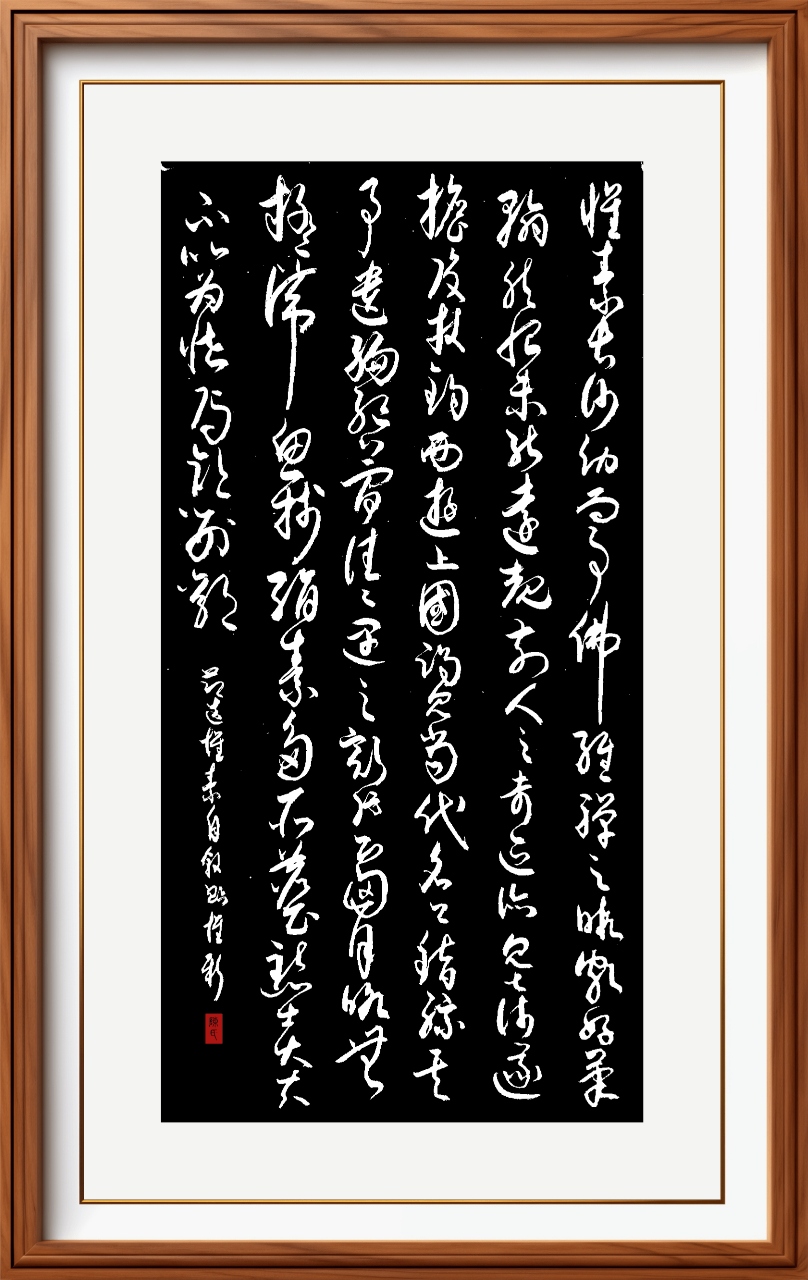 懷素長沙幼而事佛經禪之暇頗好筆
翰然恨未能遠覩前人之奇迹所見甚淺遂
擔笈杖錫西遊上國謁見當代名公錯綜其
事遺編絕簡往往遇之豁然心胸略無
疑滯魚牋絹素多所塵點士大夫
不以為怪焉
節選懷素自敘帖